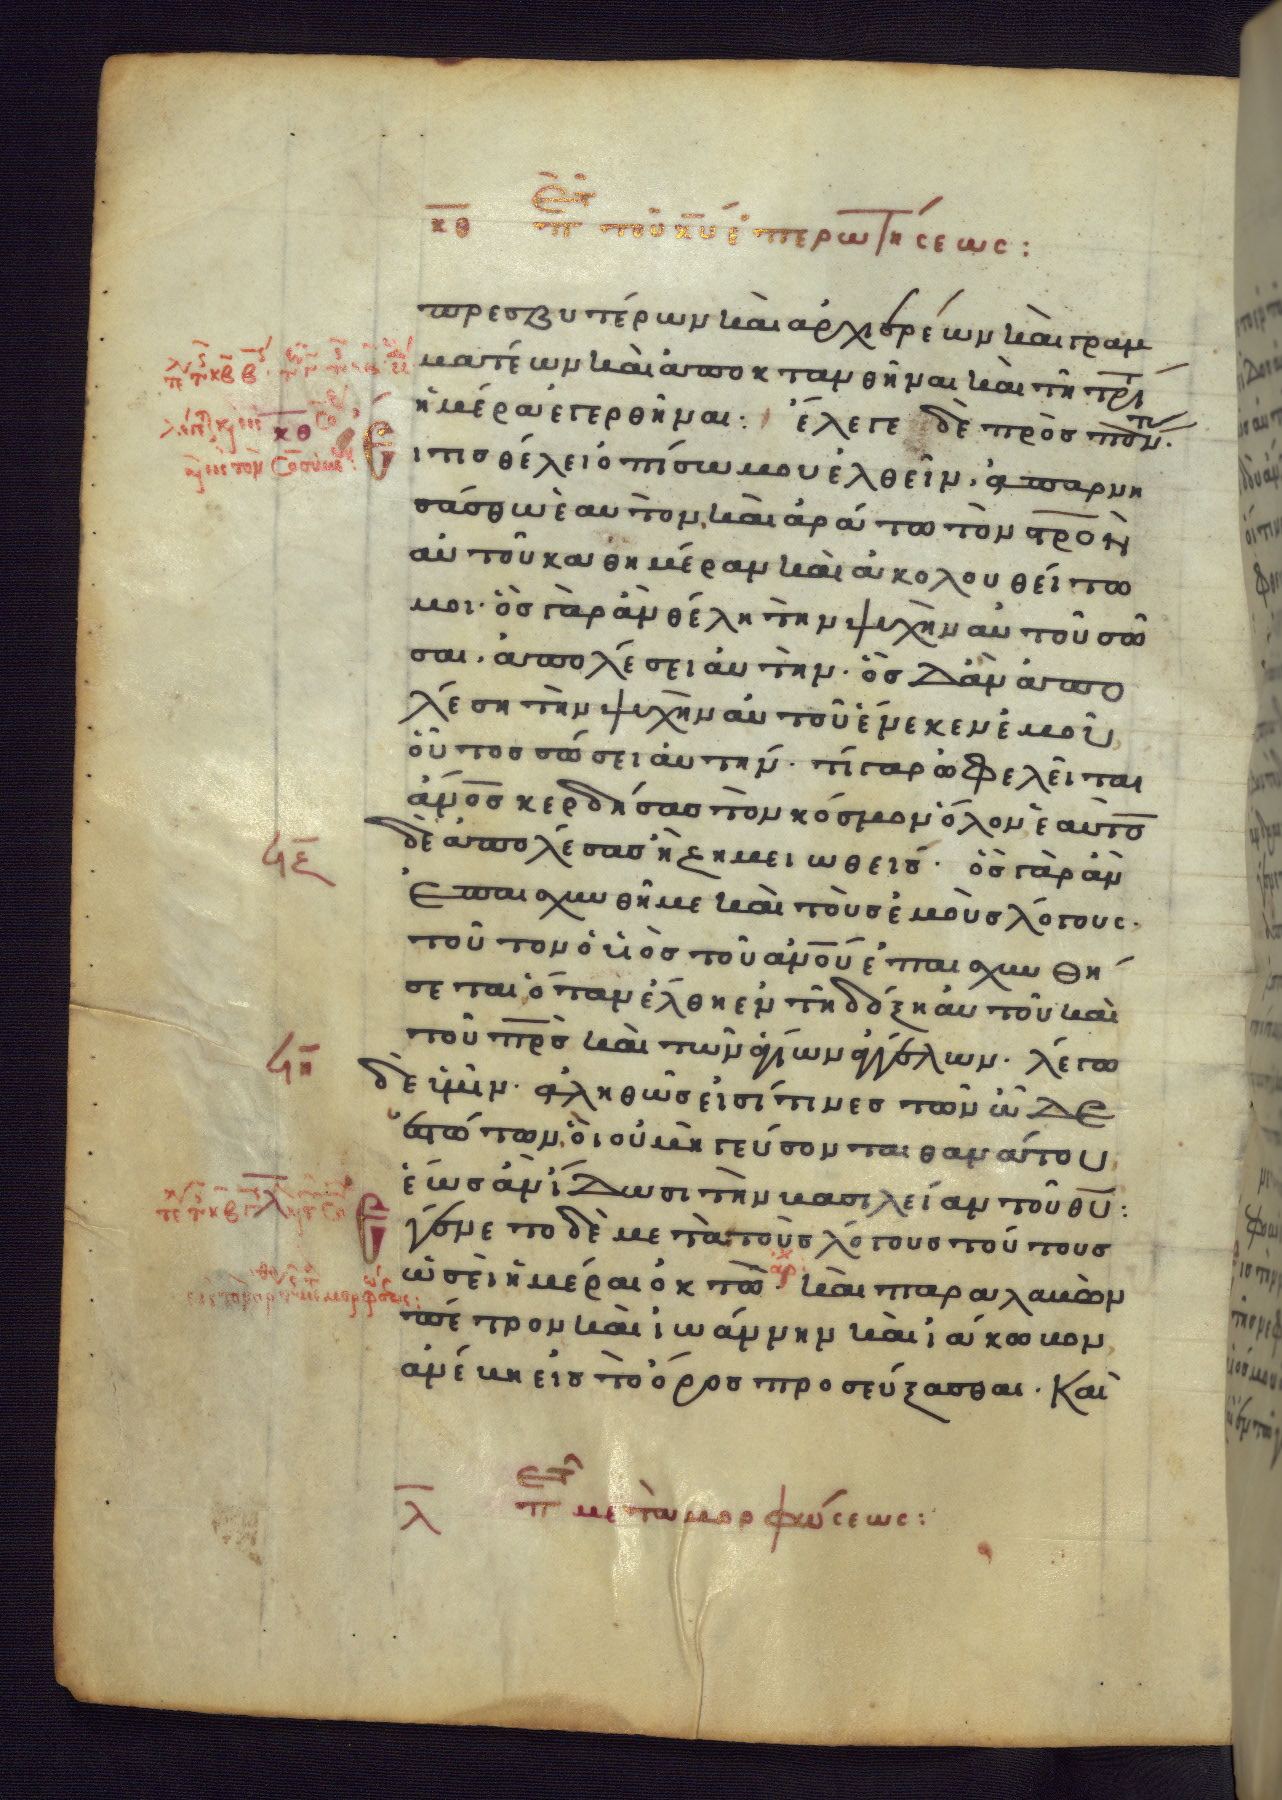 κθ περὶ τοῦ κυ ἐπερωτήσεως:
πρεσβυτέρων καὶ ἀρχιερέων καὶ γραμ
ματέων καὶ ἀποκτανθῆναι καὶ τῆ τρί
ἡμέρα ἐγερθῆναι: ἔλεγε δὲ πρὸς πάν.
Εἴ τισ θέλει ὀπίσω μου ἐλθεῖν. ἀπαρνη
σάσθω ἑαυτὸν, καὶ ἀράτω τὸν στρον
αὐτοῦ καθημέραν καὶ ἀκολουθείτω
μοι· ὃσ γὰρ ἂν θέλη τὴν ψυχὴν αὐτοῦ σῶ
σαι. ἀπολέσει αὐτήν· ὃσ δ' ἂν ἀπο
λέση τὴν ψυχὴν αὐτοῦ ἕνεκεν ἐμοῦ
οὗτοσ σώσει αὐτήν· τί γὰρ ὠφελεῖται
ἄνοσ κερδήσασ τὸν κόσμον ὅλον ἑαυτὸ
δὲ ἀπολέσασ ἢ ζημειωθεισ· ὃσ γὰρ ἂν
Ἐπαισχυνθῆ με καὶ τοὺσ ἐμοὺσ λόγους·
τοῦτον ὁ υἱὸσ τοῦ ἀνου ἐπαισχυνθή
σεται ὅταν ἔλθη ἐν τῆ δόξη αὐτοῦ καὶ
τοῦ πρσ καὶ τῶν ἁγίων ἀγγέλων· λέγω
δὲ ὑμῖν· ἀληθῶσ εἰσί τινεσ τῶν ὧδε
ἑστώτων, ὃι οὐ μὴ γεύσονται θανάτου
ἕωσ ἂν ἴδωσι τὴν βασιλείαν τοῦ θυ:
Ἐγένετο δὲ μετὰ τοὺσ λόγουσ τούτουσ
ὡσεὶ ἡμέραι ὀκτὼ· καὶ παραλαβὼν
πέτρον καὶ ἰωάννην καὶ ἰάκωβον
ἀνέβη εἰσ τὸ ὄροσ προσεύξασθαι· Καὶ
λ περὶ μεταμορφώσεως: